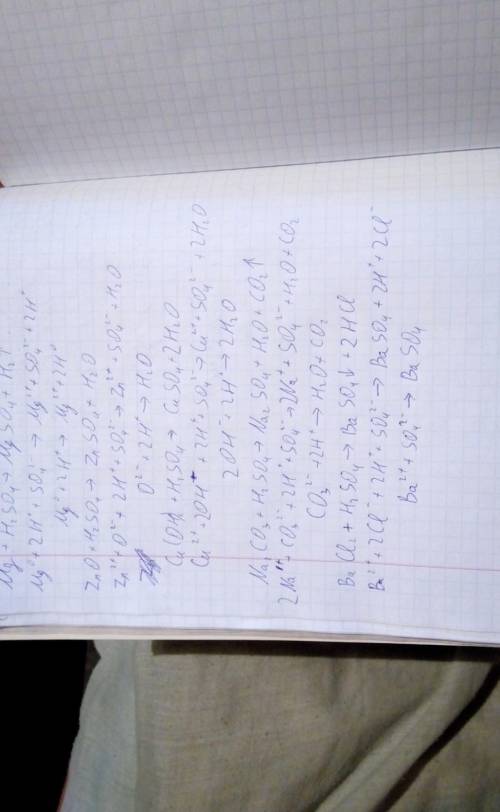 Mg + H₂SO₄ → MgSO₄ + H₂↑
Mg⁰ + 2H⁺ + SO₄²⁻ → Mg²⁺ + SO₄²⁻ + 2H⁺
Mg⁰ + 2H⁺ → Mg²⁺ + 2H⁰
ZnO + H₂SO₄ → ZnSO₄ + H₂O
Zn²⁺ + O²⁻ + 2H⁺ + SO₄²⁻ → Zn²⁺ + SO₄²⁻ + H₂O
O²⁻ + 2H⁺ → H₂O
Cu(OH)₂ + H₂SO₄ → CuSO₄ + 2H₂O
Cu²⁺ + 2OH⁻ + 2H⁺ + SO₄²⁻ → Cu²⁺ + SO₄²⁻ + 2H₂O
2OH⁻ + 2H⁺ → 2H₂O
Na₂CO₃ + H₂SO₄ → Na₂SO₄ + H₂O + CO₂↑
2Na⁺ + CO₃²⁻ + 2H⁺ + SO₄²⁻ → 2Na⁺ + SO₄²⁻ + H₂O + CO₂
CO₃²⁻ + 2H⁺ → H₂O + CO₂
BaCl₂ + H₂SO₄ → BaSO₄↓ + 2HCl
Ba²⁺ + 2Cl⁻ + 2H⁺ + SO₄²⁻ → BaSO₄ + 2H⁺ + 2Cl⁻
Ba²⁺ + SO₄²⁻ → BaSO₄